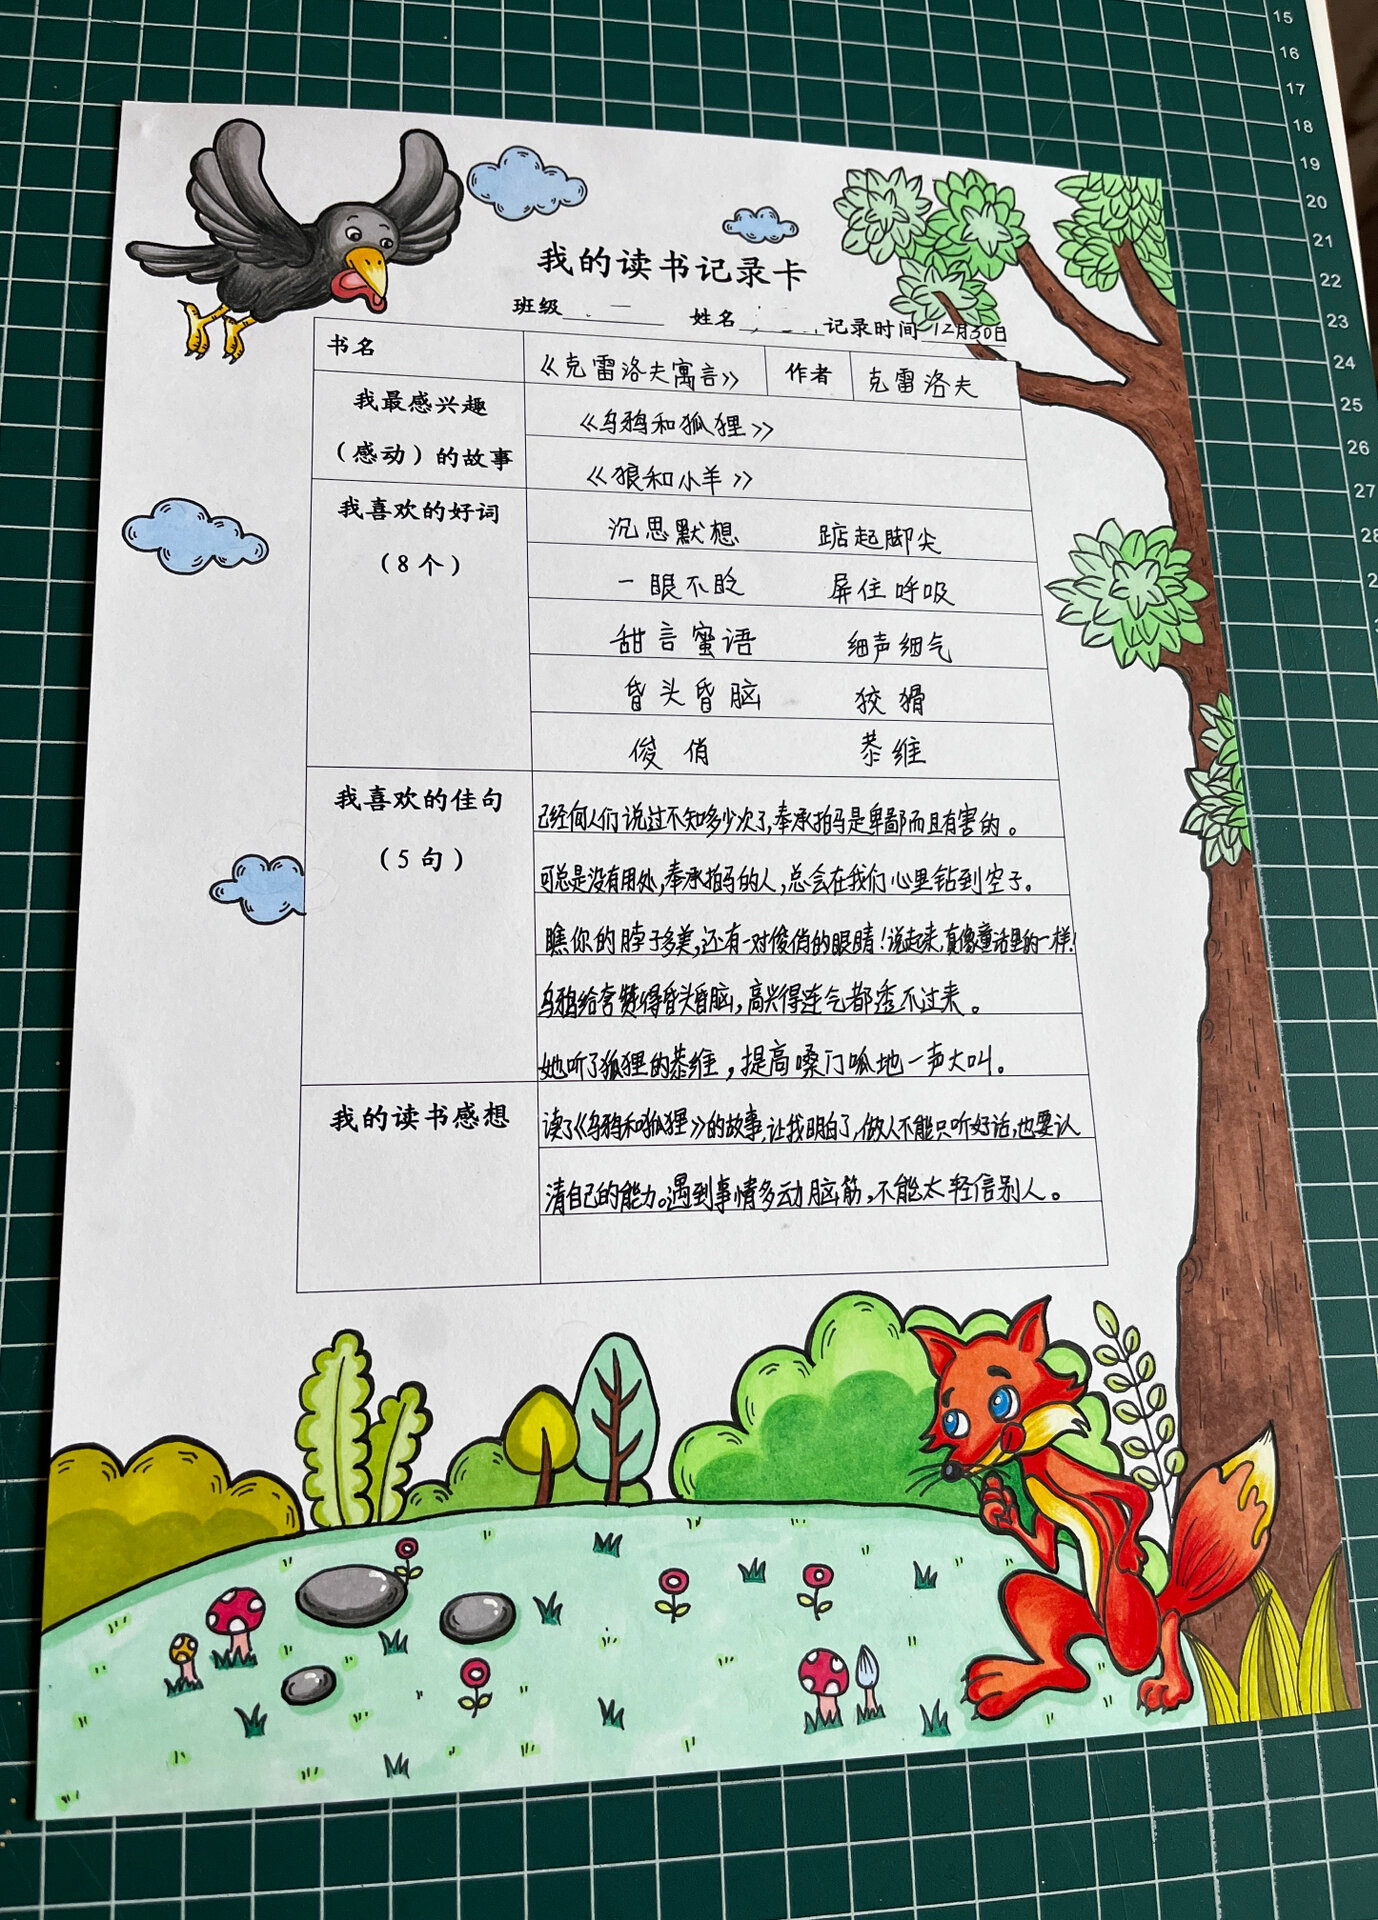 我的读书记录卡
班级 姓名 记录时间 12月30日
书名 《克雷洛夫寓言》 作者 克雷洛夫
我最感兴趣
(感动)的故事
《乌鸦和狐狸》
《狼和小羊》
我喜欢的好词
(8个)
沉思默想 踮起脚尖
一眼不眨 屏住呼吸
甜言蜜语 细声细气
昏头昏脑 狡猾
俊俏 恭维
我喜欢的佳句
(5句)
已经向人们说过不知多少次了,奉承拍马是卑鄙而且有害的。
可总是没有用处,奉承拍马的人,总会在我们心里钻到空子。
瞧你的脖子多美,还有一对俊俏的眼睛!说起来,真像童话里的一样!
乌鸦给夸赞得昏头昏脑,高兴得连气都透不过来。
她听了狐狸的恭维,提高嗓门呱地一声大叫。
我的读书感想
读了《乌鸦和狐狸》的故事,让我明白了,做人不能只听好话,也要认
清自己的能力。遇到事情多动脑筋,不能太轻信别人。
15
16
17
18
19
20
21
22
23
24
25
26
27